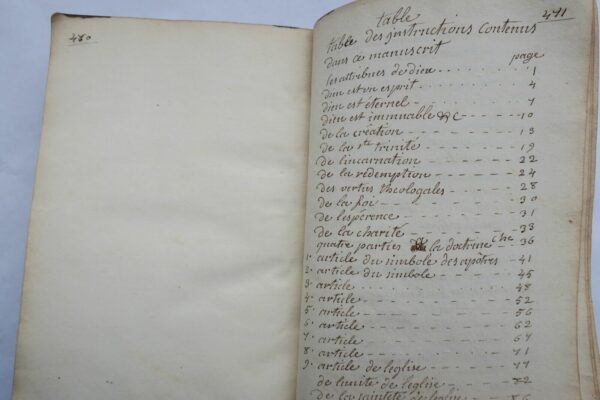 480
471
table
table des jnstructions Contenus
dans ce manuscrit
page
les attribues de dieu 1
dieu est un esprit 4
dieu est éternel 7
dieu est immuable &c 10
de la création 13
de la ste trinité 19
de lincarnation 22
de la rédemption 24
des vertus theologales 28
de la foi 30
de lesperence 31
de la charité 33
quatre parties de la doctrine che 36
1. article du simbole des apôtres 41
2. article du simbole 45
3. article 48
4. article 52
5. article 56
6. article 62
7. article 67
8. article 71
9. article de leglise 77
de lunité de leglise 82
de la sainteté de leglise 86